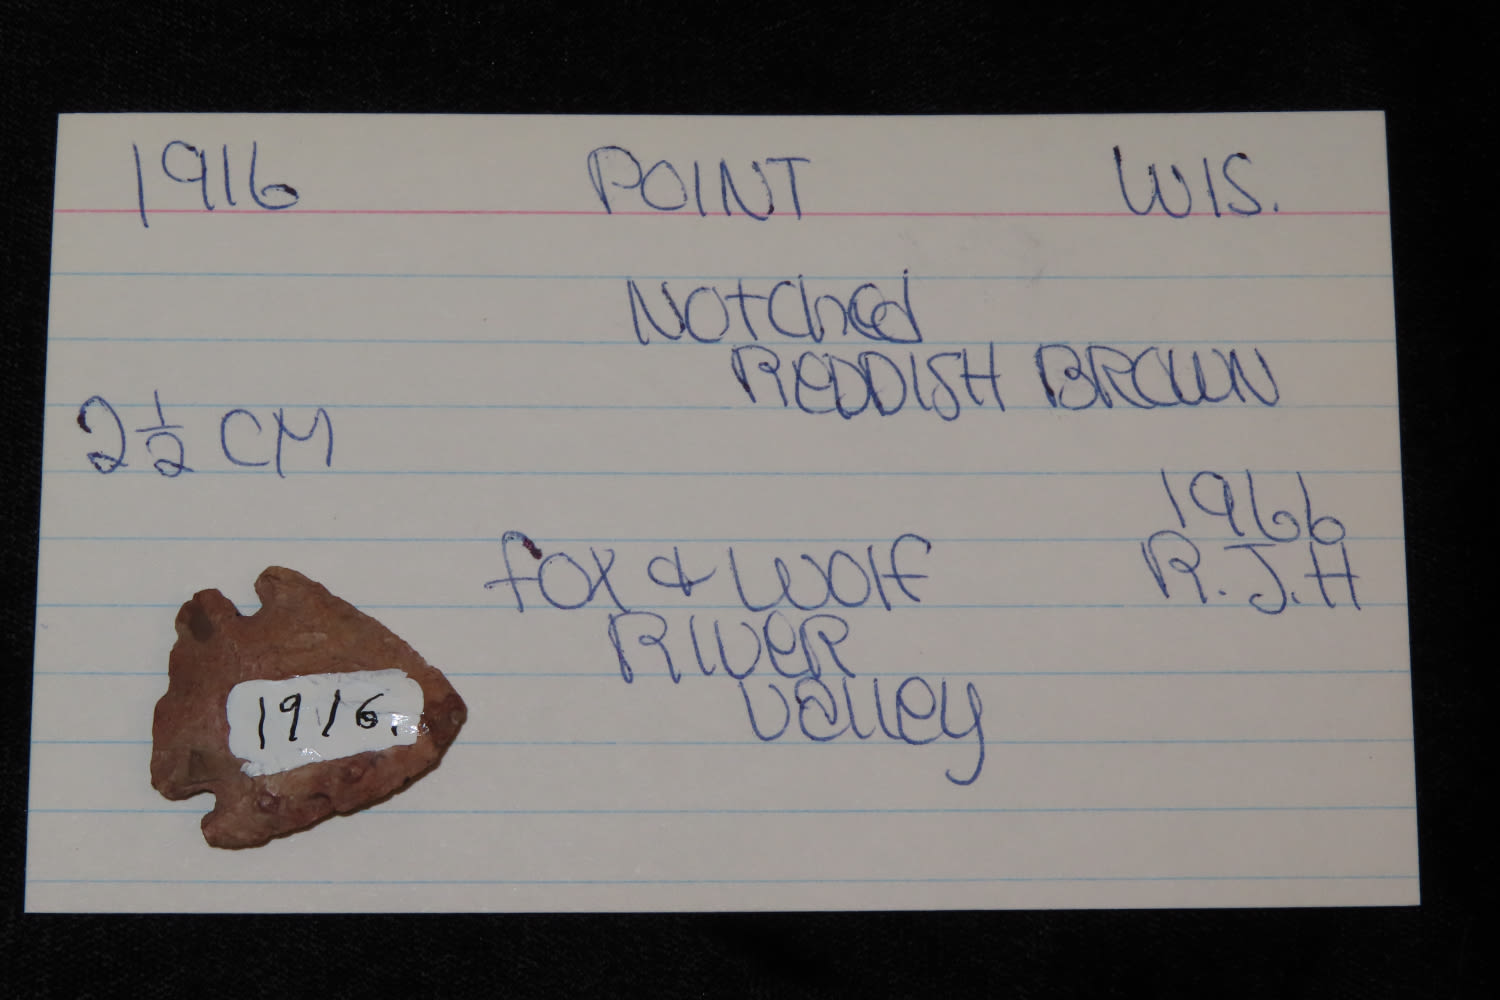 1916 POINT WIS.
Notched
REDDISH BROWN
2 1/2 CM
1966
fox & WOLF
R.J.H
RIVER
valley
1916.